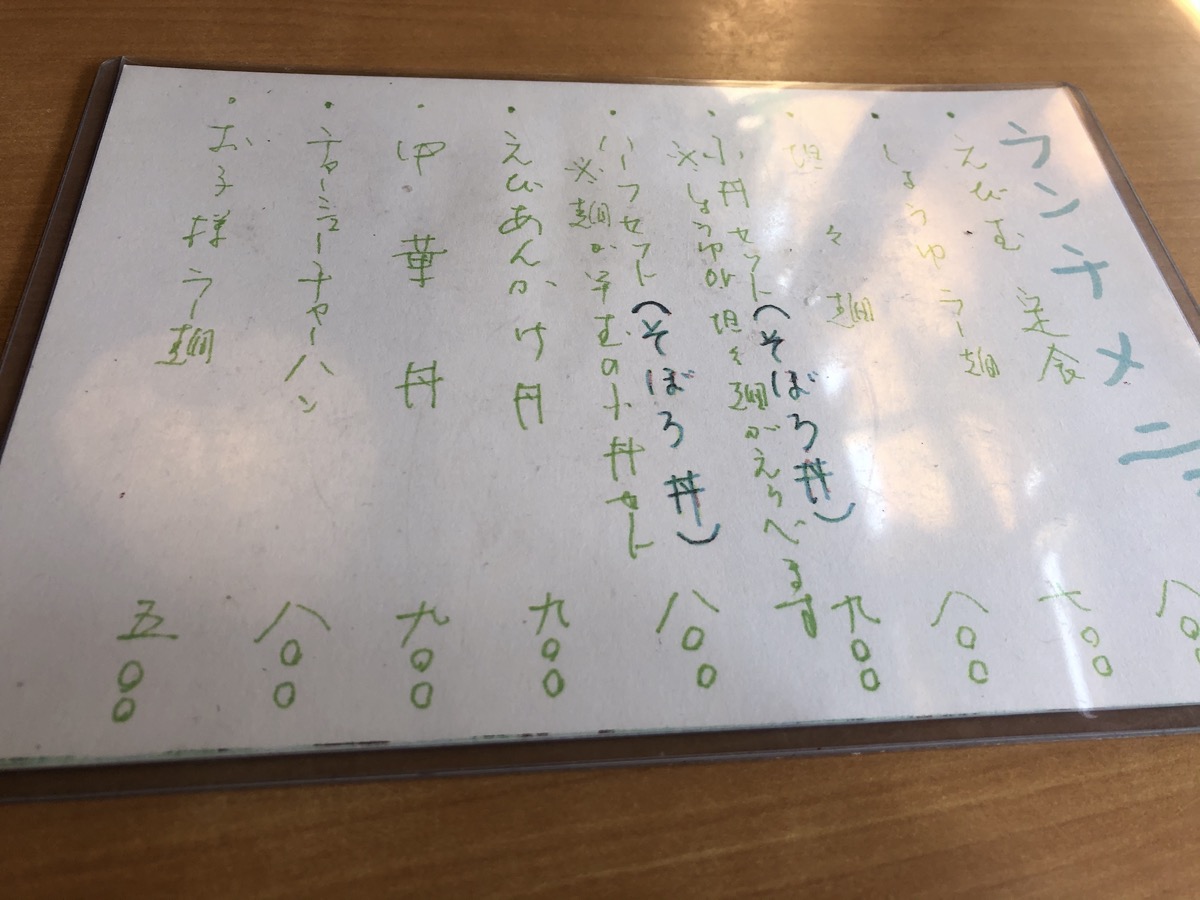 ランチメニ
・えびむし定食 八〇〇
・しょうゆラー麺 七〇〇
・担々麺 八〇〇
・小丼セット(そぼろ丼) 九〇〇
※しょうゆか担々麺がえらべます
・ハーフセット(そぼろ丼) 八〇〇
※麺が半玉の小丼セット
・えびあんかけ丼 九〇〇
・中華丼 九〇〇
・チャーシューチャーハン 八〇〇
・お子様ラー麺 五〇〇